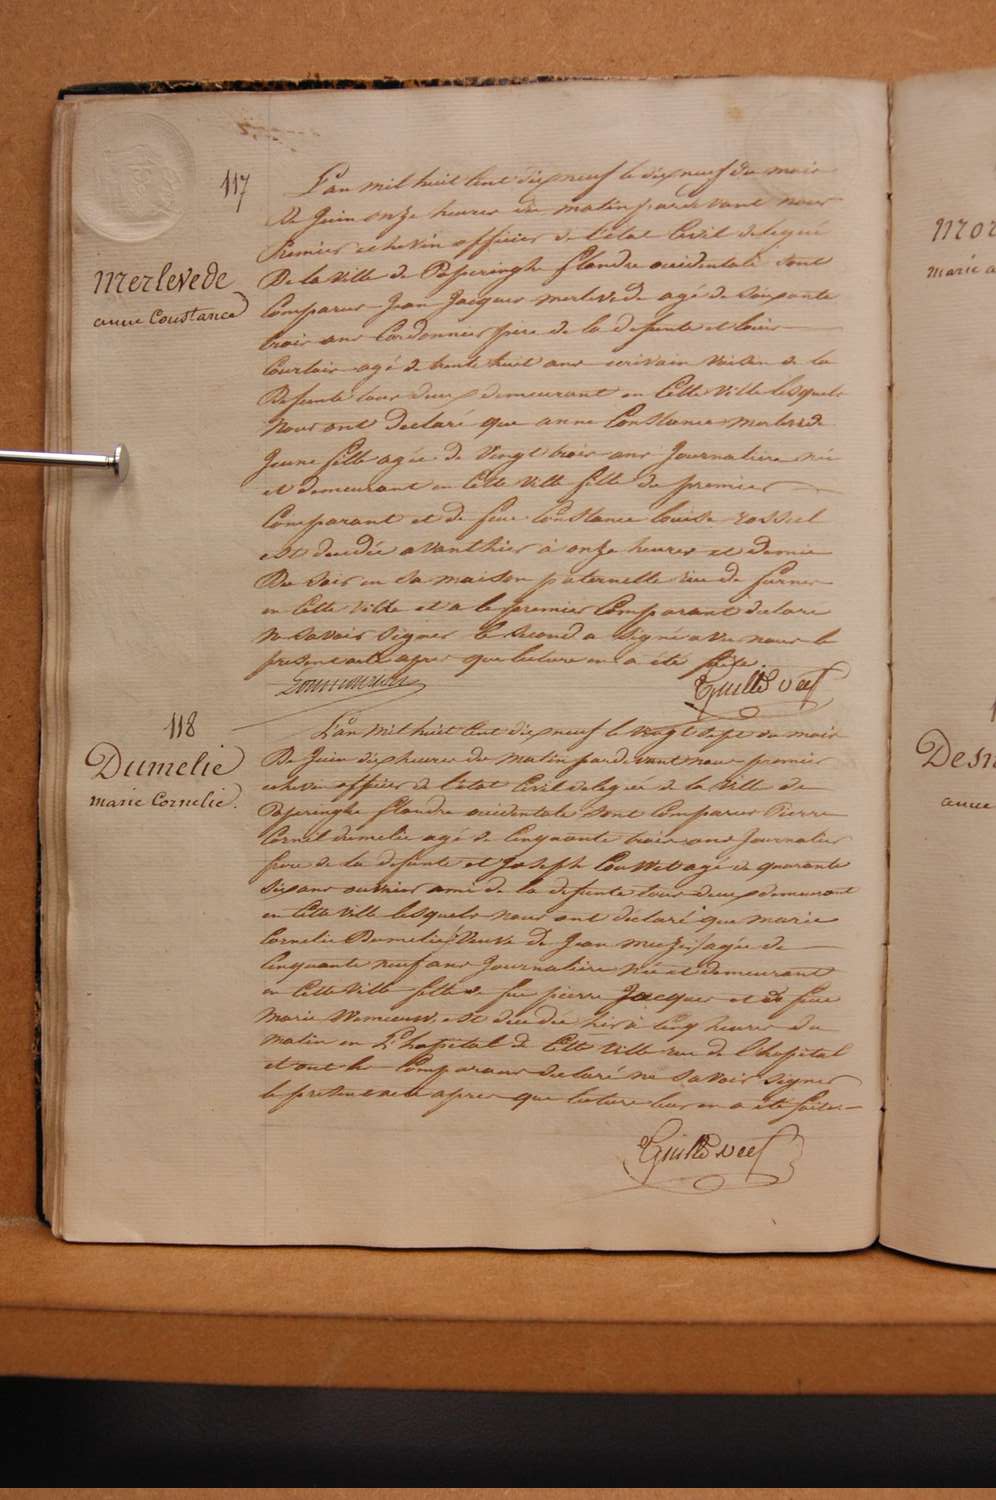 117
Merlevede
anne Constance
L'an mil huit Cent dix neuf le dix neuf du mois
de Juin onze heures du matin pardevant nous
Premier echevin officier de l'état Civil delegué
De la ville de Poperinghe flandre occidentale sont
Comparus Jean Jacques merlevede agé de soixante
trois ans Cordonnier pere de la defunte et louis
Courtois agé de trente huit ans ecrivain voisin de la
Defunte tous deux demeurant en Cette Ville lesquels
Nous ont declaré que anne Constance merlevede
Jeune fille agée de Vingt trois ans Journaliere née
et demeurant en Cette Ville fille du premier
Comparant et de feue Constance louise rossel
est decedée avanthier à onze heures et demie
Du soir en sa maison paternelle rue de furnes
en Cette Ville et a le premier Comparant declaré
ne savoir signer le second a signé avec nous le
present acte apres que lecture en a été faite
Guille Deel
118
Dumelie
marie Cornelie.
L'an mil huit Cent dix neuf le vingt sept du mois
De Juin dix heures du matin pardevant nous premier
echevin officier de l'état Civil delegué de la Ville de
Poperinghe flandre occidentale sont Comparus Pierre
Cornil dumelie agé de Cinquante trois ans Journalier
frere de la defunte et Joseph agé de quarante
six ans ouvrier ami de la defunte tous deux demeurant
en Cette Ville lesquels nous ont déclaré que marie
Cornelie Dumelie Veuve de Jean agée de
Cinquante neuf ans Journaliere née et demeurant
en Cette Ville fille de feu pierre Jacques et de feue
Marie est decedée hier à Cinq heures du
matin en L'hopital de Cette Ville rue de l'hopital
et ont les Comparans declaré ne savoir signer
le present acte apres que lecture leur en a été faite
Guille Deel
Mor
marie a
Desm
anne